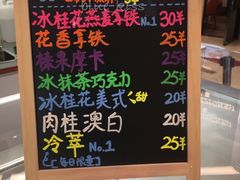 冰桂花燕麦拿铁 No.1 30羊
花香拿铁 25羊
榛果摩卡 25羊
冰抹茶巧克力 25羊
冰桂花美式 甜 20羊
肉桂澳白 20羊
冷萃 No.1 25羊
[每日限量]